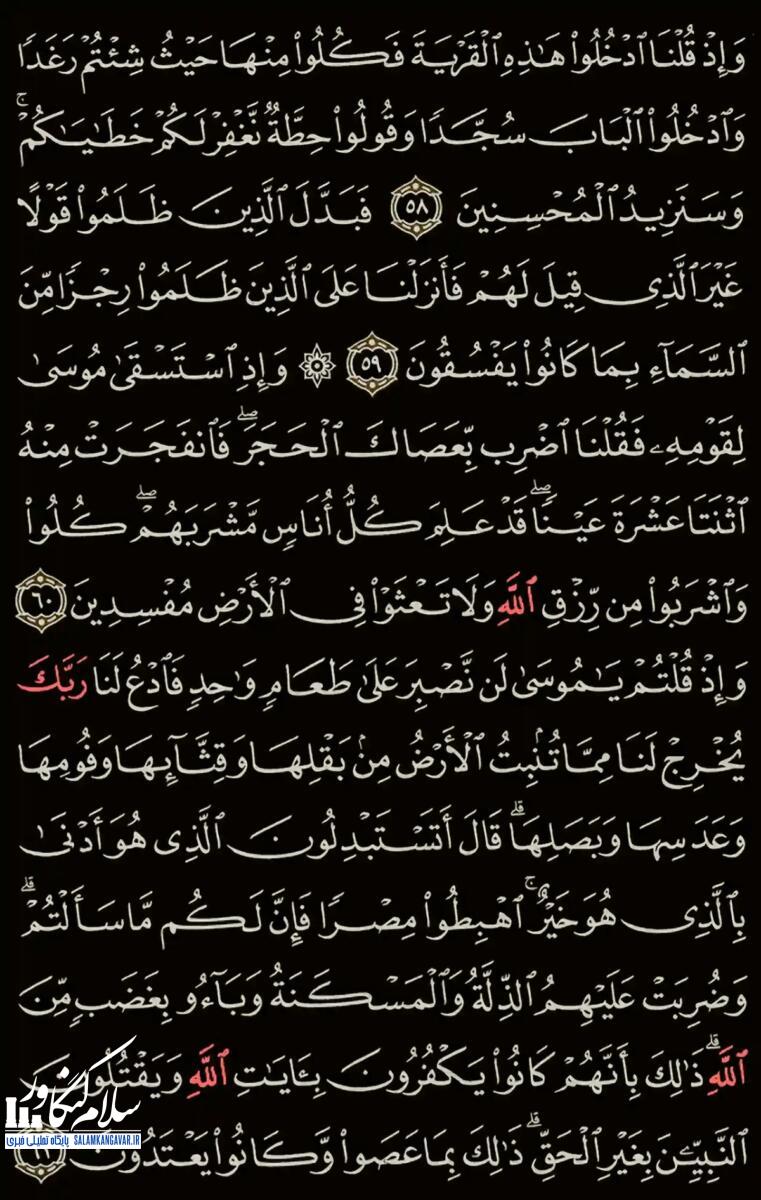 وَإِذْ قُلْنَا ٱدْخُلُوا۟ هَـٰذِهِ ٱلْقَرْيَةَ فَكُلُوا۟ مِنْهَا حَيْثُ شِئْتُمْ رَغَدًا
وَٱدْخُلُوا۟ ٱلْبَابَ سُجَّدًا وَقُولُوا۟ حِطَّةٌ نَّغْفِرْ لَكُمْ خَطَـٰيَـٰكُمْ ۚ
وَسَنَزِيدُ ٱلْمُحْسِنِينَ ٥٨ فَبَدَّلَ ٱلَّذِينَ ظَلَمُوا۟ قَوْلًا
غَيْرَ ٱلَّذِى قِيلَ لَهُمْ فَأَنزَلْنَا عَلَى ٱلَّذِينَ ظَلَمُوا۟ رِجْزًا مِّنَ
ٱلسَّمَآءِ بِمَا كَانُوا۟ يَفْسُقُونَ ٥٩ ۞ وَإِذِ ٱسْتَسْقَىٰ مُوسَىٰ
لِقَوْمِهِۦ فَقُلْنَا ٱضْرِب بِّعَصَاكَ ٱلْحَجَرَ ۖ فَٱنفَجَرَتْ مِنْهُ
ٱثْنَتَا عَشْرَةَ عَيْنًا ۖ قَدْ عَلِمَ كُلُّ أُنَاسٍ مَّشْرَبَهُمْ ۖ كُلُوا۟
وَٱشْرَبُوا۟ مِن رِّزْقِ ٱللَّهِ وَلَا تَعْثَوْا۟ فِى ٱلْأَرْضِ مُفْسِدِينَ ٦٠
وَإِذْ قُلْتُمْ يَـٰمُوسَىٰ لَن نَّصْبِرَ عَلَىٰ طَعَامٍ وَٰحِدٍ فَٱدْعُ لَنَا رَبَّكَ
يُخْرِجْ لَنَا مِمَّا تُنۢبِتُ ٱلْأَرْضُ مِنۢ بَقْلِهَا وَقِثَّآئِهَا وَفُومِهَا
وَعَدَسِهَا وَبَصَلِهَا ۖ قَالَ أَتَسْتَبْدِلُونَ ٱلَّذِى هُوَ أَدْنَىٰ
بِٱلَّذِى هُوَ خَيْرٌ ۚ ٱهْبِطُوا۟ مِصْرًا فَإِنَّ لَكُم مَّا سَأَلْتُمْ ۗ
وَضُرِبَتْ عَلَيْهِمُ ٱلذِّلَّةُ وَٱلْمَسْكَنَةُ وَبَآءُو بِغَضَبٍ مِّنَ
ٱللَّهِ ۗ ذَٰلِكَ بِأَنَّهُمْ كَانُوا۟ يَكْفُرُونَ بِـَٔايَـٰتِ ٱللَّهِ وَيَقْتُلُونَ
ٱلنَّبِيِّـۧنَ بِغَيْرِ ٱلْحَقِّ ۗ ذَٰلِكَ بِمَا عَصَوا۟ وَّكَانُوا۟ يَعْتَدُونَ ٦١
سلام کنگاور
پایگاه تحلیلی خبری SALAMKANGAVAR.IR